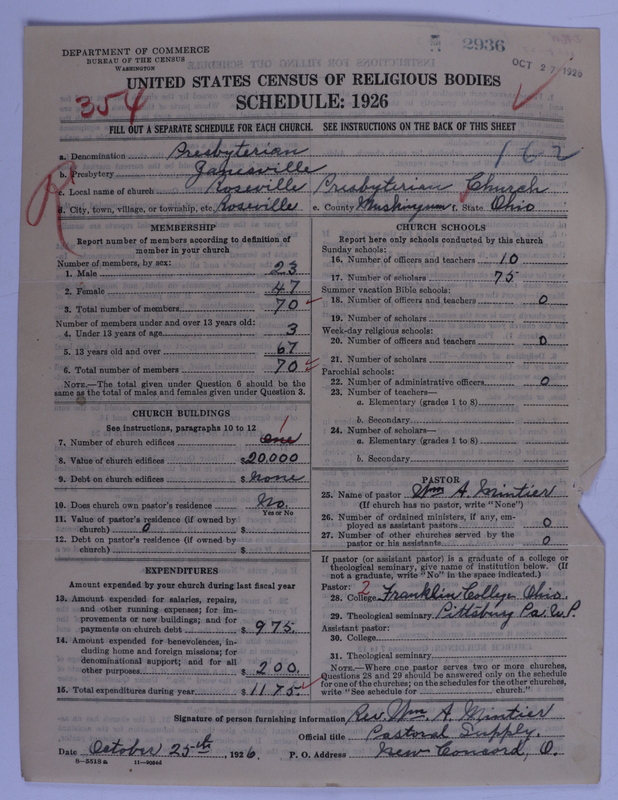 DEPARTMENT OF COMMERCE
BUREAU OF THE CENSUS
WASHINGTON
2936
OCT 27 1926
UNITED STATES CENSUS OF RELIGIOUS BODIES
354
SCHEDULE: 1926
FILL OUT A SEPARATE SCHEDULE FOR EACH CHURCH. SEE INSTRUCTIONS ON THE BACK OF THIS SHEET
a. Denomination Presbyterian
162
b. Presbytery Zanesville
c. Local name of church Roseville Presbyterian Church
R
d. City, town, village, or township, etc. Roseville e. County Muskingum f. State Ohio
MEMBERSHIP
Report number of members according to definition of
member in your church
Number of members, by sex:
1. Male 23
2. Female 47
3. Total number of members 70
Number of members under and over 13 years old:
4. Under 13 years of age 3
5. 13 years old and over 67
6. Total number of members 70
NOTE.—The total given under Question 6 should be the
same as the total of males and females given under Question 3.
CHURCH BUILDINGS
See instructions, paragraphs 10 to 12
7. Number of church edifices one 1
8. Value of church edifices $20,000
9. Debt on church edifices $None
10. Does church own pastor's residence No.
Yes or No
11. Value of pastor's residence (if owned by
church) 0 $
12. Debt on pastor's residence (if owned by
church) $
EXPENDITURES
Amount expended by your church during last fiscal year
13. Amount expended for salaries, repairs,
and other running expenses; for im-
provements or new buildings; and for
payments on church debt $975.
14. Amount expended for benevolences, in-
cluding home and foreign missions; for
denominational support; and for all
other purposes $200.
15. Total expenditures during year $1175
CHURCH SCHOOLS
Report here only schools conducted by this church
Sunday schools:
16. Number of officers and teachers 10
17. Number of scholars 75
Summer vacation Bible schools:
18. Number of officers and teachers 0
19. Number of scholars
Week-day religious schools:
20. Number of officers and teachers 0
21. Number of scholars
Parochial schools:
22. Number of administrative officers 0
23. Number of teachers—
a. Elementary (grades 1 to 8)
b. Secondary
24. Number of scholars—
a. Elementary (grades 1 to 8)
b. Secondary
PASTOR
25. Name of pastor Wm A. Mintier
(If church has no pastor, write "None")
26. Number of ordained ministers, if any, em-
ployed as assistant pastors 0
27. Number of other churches served by the
pastor or his assistants 0
If pastor (or assistant pastor) is a graduate of a college or
theological seminary, give name of institution below. (If
not a graduate, write "No" in the space indicated.)
Pastor: 2
28. College Franklin College Ohio.
29. Theological seminary Pittsburg Pa. U.P.
Assistant pastor:
30. College
31. Theological seminary
NOTE.—Where one pastor serves two or more churches,
Questions 28 and 29 should be answered only on the schedule
for one of the churches; on the schedules for the other churches,
write "See schedule for church."
Signature of person furnishing information Rev. Wm. A. Mintier
Official title Pastoral Supply.
Date October 25-th, 1926. P. O. Address New Concord, O.
8—5518 a